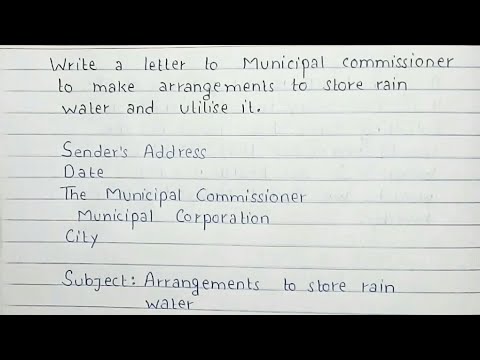 Write a letter to Municipal commissioner
to make arrangements to store rain
water and utilise it.
Sender's Address
Date
The Municipal Commissioner
Municipal Corporation
City
Subject: Arrangements to store rain
water